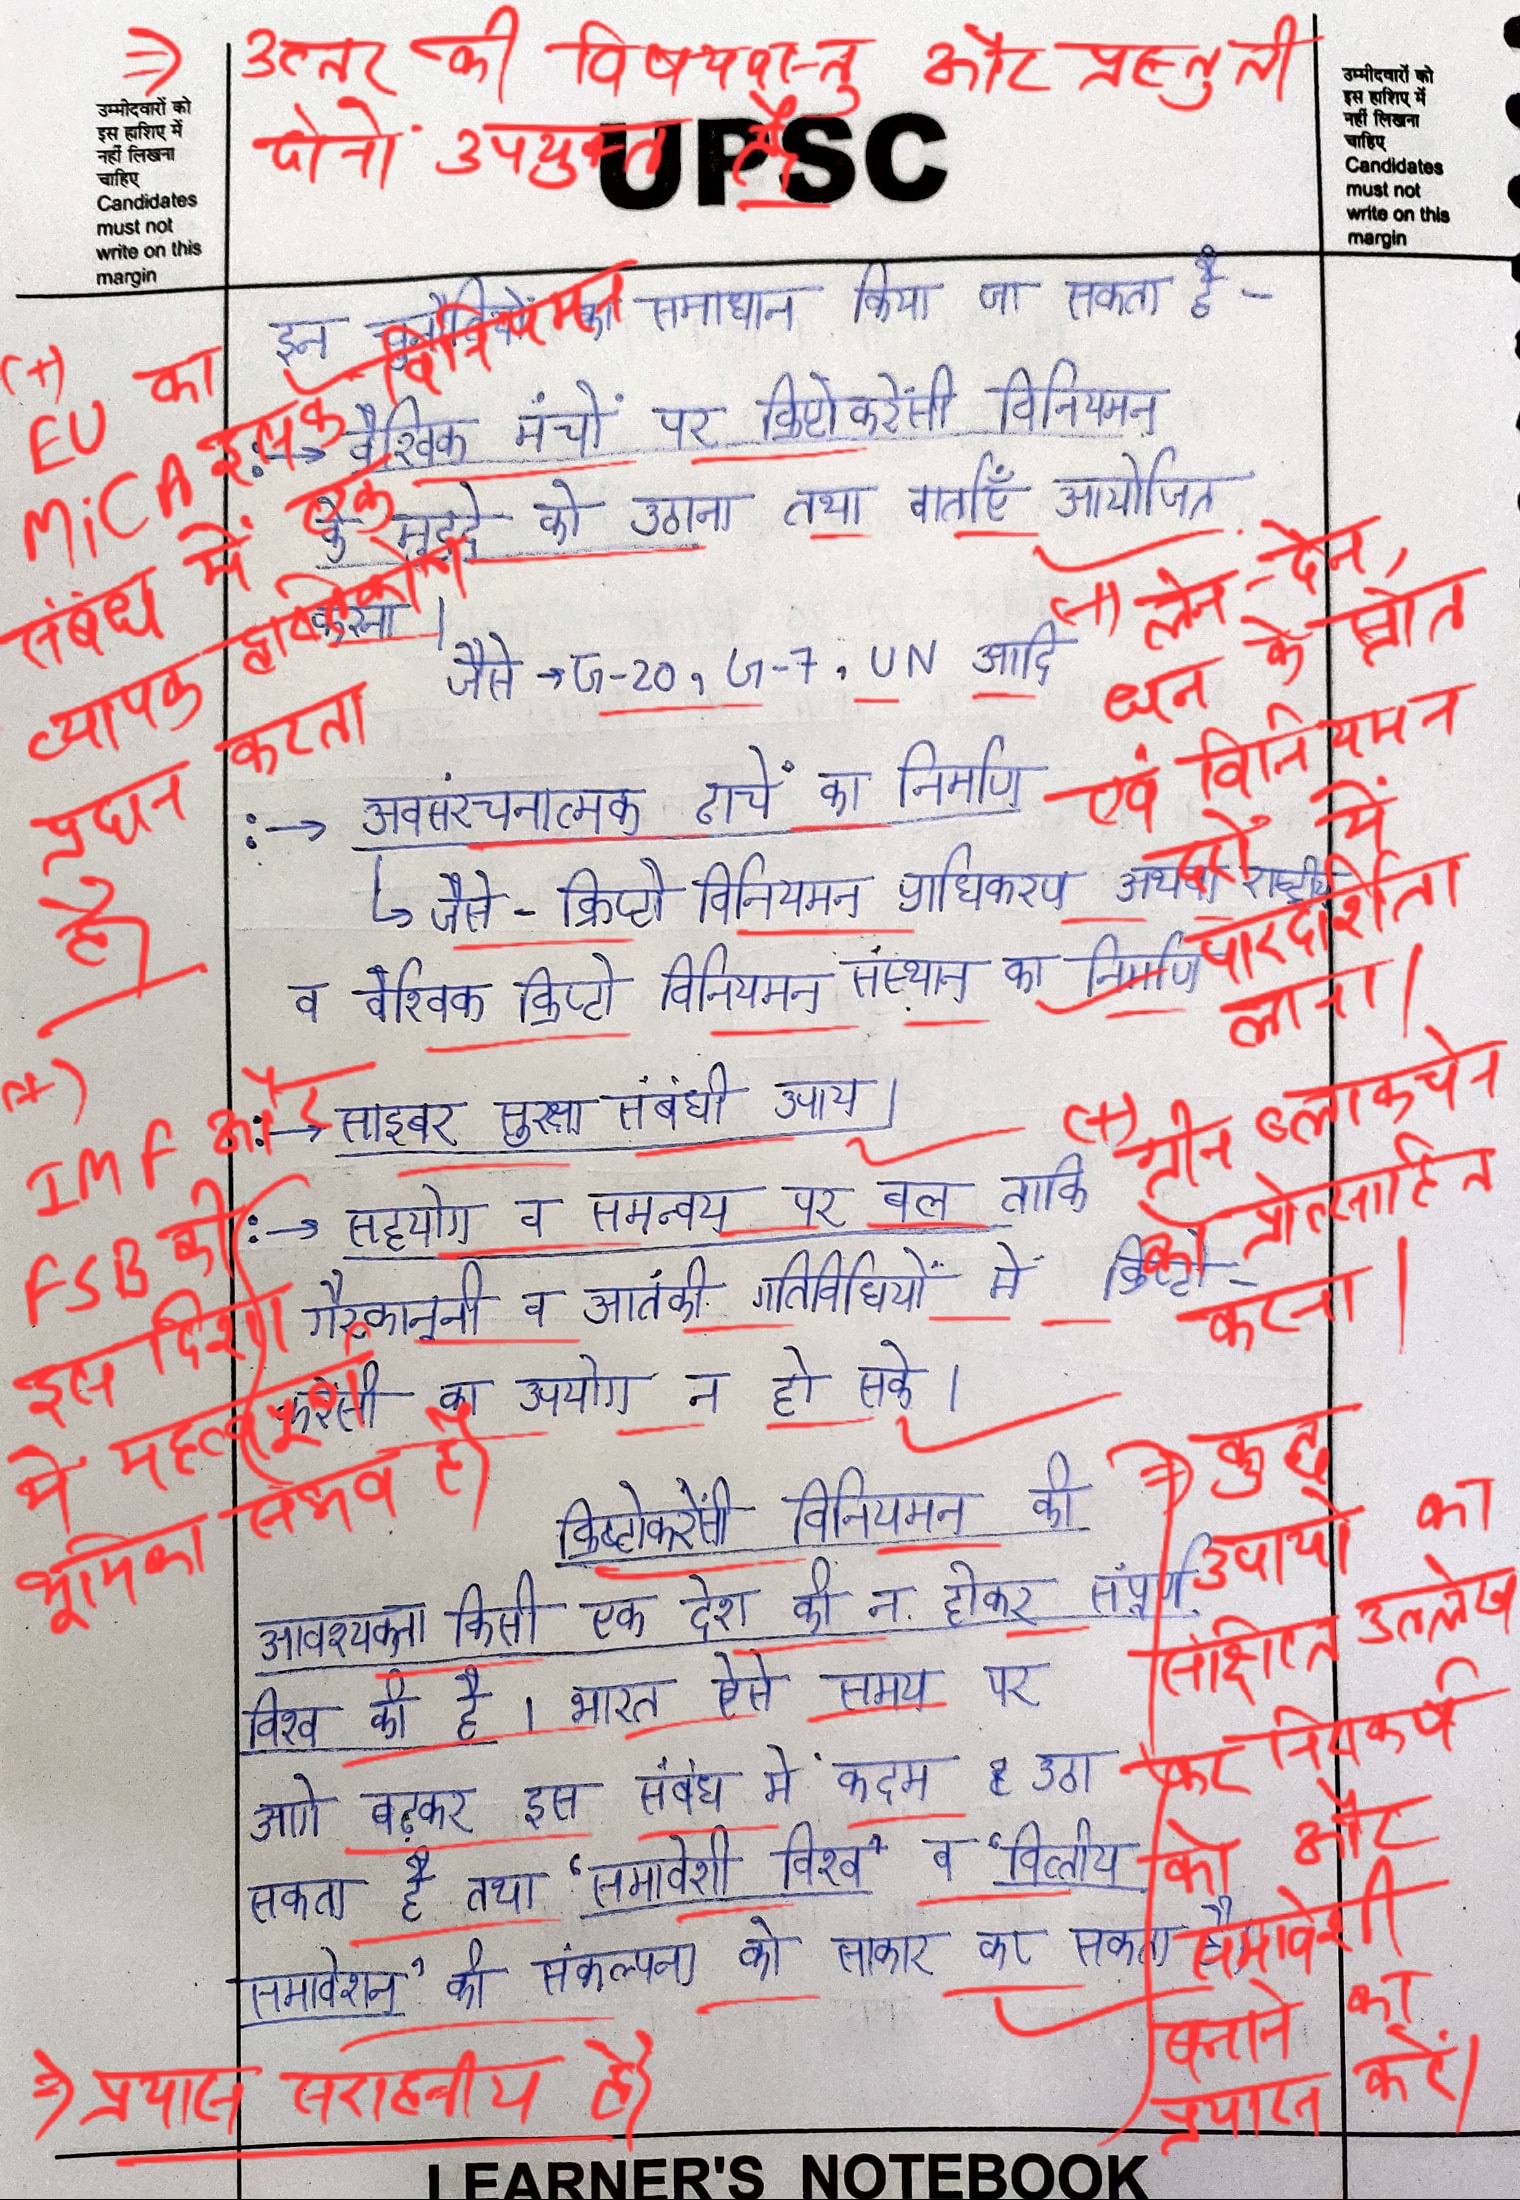 ⇒ उत्तर की विषयवस्तु और प्रस्तुती
दोनों उपयुक्त है
UPSC
उम्मीदवारों को
इस हाशिए में
नहीं लिखना
चाहिए
Candidates
must not
write on this
margin
उम्मीदवारों को
इस हाशिए में
नहीं लिखना
चाहिए
Candidates
must not
write on this
margin
इन चुनौतियों का समाधान किया जा सकता है -
:→ वैश्विक मंचों पर क्रिप्टोकरेंसी विनियमन
के मुद्दे को उठाना तथा वार्ताएँ आयोजित
करना ।
जैसे → G-20, G-7, UN आदि
:→ अवसंरचनात्मक ढाचें का निर्माण
↳ जैसे - क्रिप्टो विनियमन प्राधिकरण अथवा राष्ट्रीय
व वैश्विक क्रिप्टो विनियमन संस्थान का निर्माण
:→ साइबर सुरक्षा संबंधी उपाय ।
:→ सहयोग व समन्वय पर बल ताकि
गैरकानूनी व आतंकी गतिविधियों में क्रिप्टो-
करेंसी का उपयोग न हो सके ।
क्रिप्टोकरेंसी विनियमन की
आवश्यकता किसी एक देश की न होकर संपूर्ण
विश्व की है । भारत ऐसे समय पर
आगे बढ़कर इस संबंध में कदम उठा
सकता है तथा 'समावेशी विश्व' व 'वित्तीय
समावेशन' की संकल्पना को साकार कर सकता है
(+)
EU का
MiCA इसके विनियमन
संबंध में एक
व्यापक दृष्टिकोण
प्रदान करता
है
(+)
IMF और
FSB की
इस दिशा
में महत्वपूर्ण
भूमिका संभव है
(+) लेन-देन,
धन के स्रोत
एवं विनियमन
दरों में
पारदर्शिता
लाना ।
(+) ग्रीन ब्लाकचेन
को प्रोत्साहित
करना ।
⇒ कुछ
उपायों का
संक्षिप्त उल्लेख
कर निष्कर्ष
को और
समावेशी
बनाने का
प्रयास करें।
⇒ प्रयास सराहनीय है
LEARNER'S NOTEBOOK